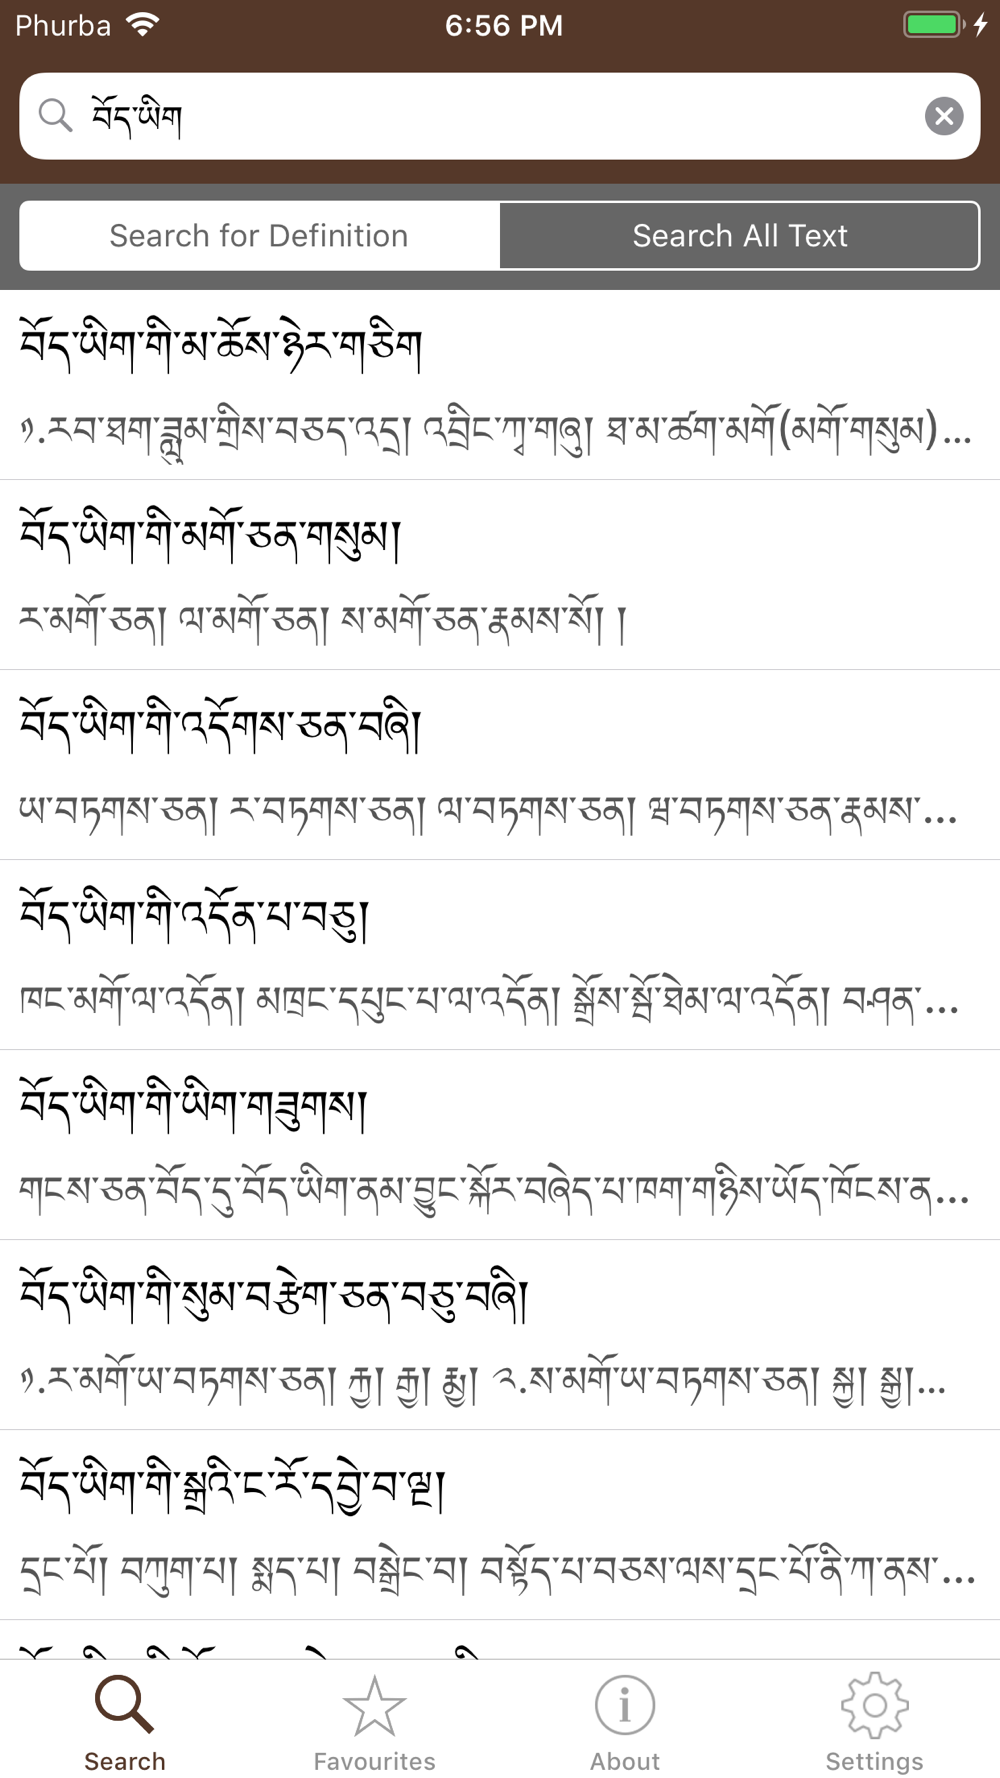 Phurba
6:56 PM
བོད་ཡིག
Search for Definition
Search All Text
བོད་ཡིག་གི་མ་ཆོས་ཉེར་གཅིག
༡.རབ་ཐག་ཟླུམ་གྲིས་བཅད་འདྲ། འབྲིང་ཀྭ་གཞུ། ཐ་མ་ཚག་མགོ(མགོ་གསུམ)...
བོད་ཡིག་གི་མགོ་ཅན་གསུམ།
ར་མགོ་ཅན། ལ་མགོ་ཅན། ས་མགོ་ཅན་རྣམས་སོ། །
བོད་ཡིག་གི་འདོགས་ཅན་བཞི།
ཡ་བཏགས་ཅན། ར་བཏགས་ཅན། ལ་བཏགས་ཅན། ཝ་བཏགས་ཅན་རྣམས་...
བོད་ཡིག་གི་འདོན་པ་བཅུ།
ཁང་མགོ་ལ་འདོན། མཁྲང་དཔུང་པ་ལ་འདོན། སྒྲོས་སྦོ་ཐེམ་ལ་འདོན། བ་ཤན་...
བོད་ཡིག་གི་ཡིག་གཟུགས།
གངས་ཅན་བོད་དུ་བོད་ཡིག་ནམ་བྱུང་སྐོར་བཞེད་པ་ཁག་གཉིས་ཡོད་ཁོངས་ན...
བོད་ཡིག་གི་སུམ་བརྩེག་ཅན་བཅུ་བཞི།
༡.ར་མགོ་ཡ་བཏགས་ཅན། རྐྱ། རྒྱ། རྨྱ། ༢.ས་མགོ་ཡ་བཏགས་ཅན། སྐྱ། སྒྱ།...
བོད་ཡིག་གི་སྒྲའི་ང་རོ་དབྱེ་བ་ལྔ།
དྲང་པོ། བཀུག་པ། སྨད་པ། བསྒྲེང་བ། བསྟོད་པ་བཅས་ལས་དྲང་པོ་ནི་ཀ་ནས་...
Search
Favourites
About
Settings